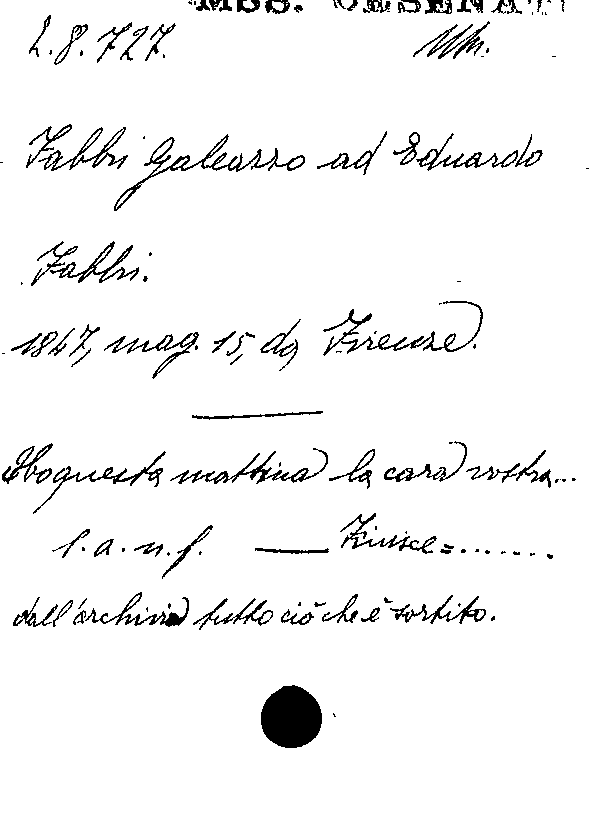 MSS. CESENATI
2.8.727.
Fabbri Galeazzo ad Eduardo
Fabbri.
1847, mag. 15, da Firenze.
Ho questa mattina la cara vostra...
l.a.n.f. — Finisce = .......
dall'archivio tutto ciò che è sortito.